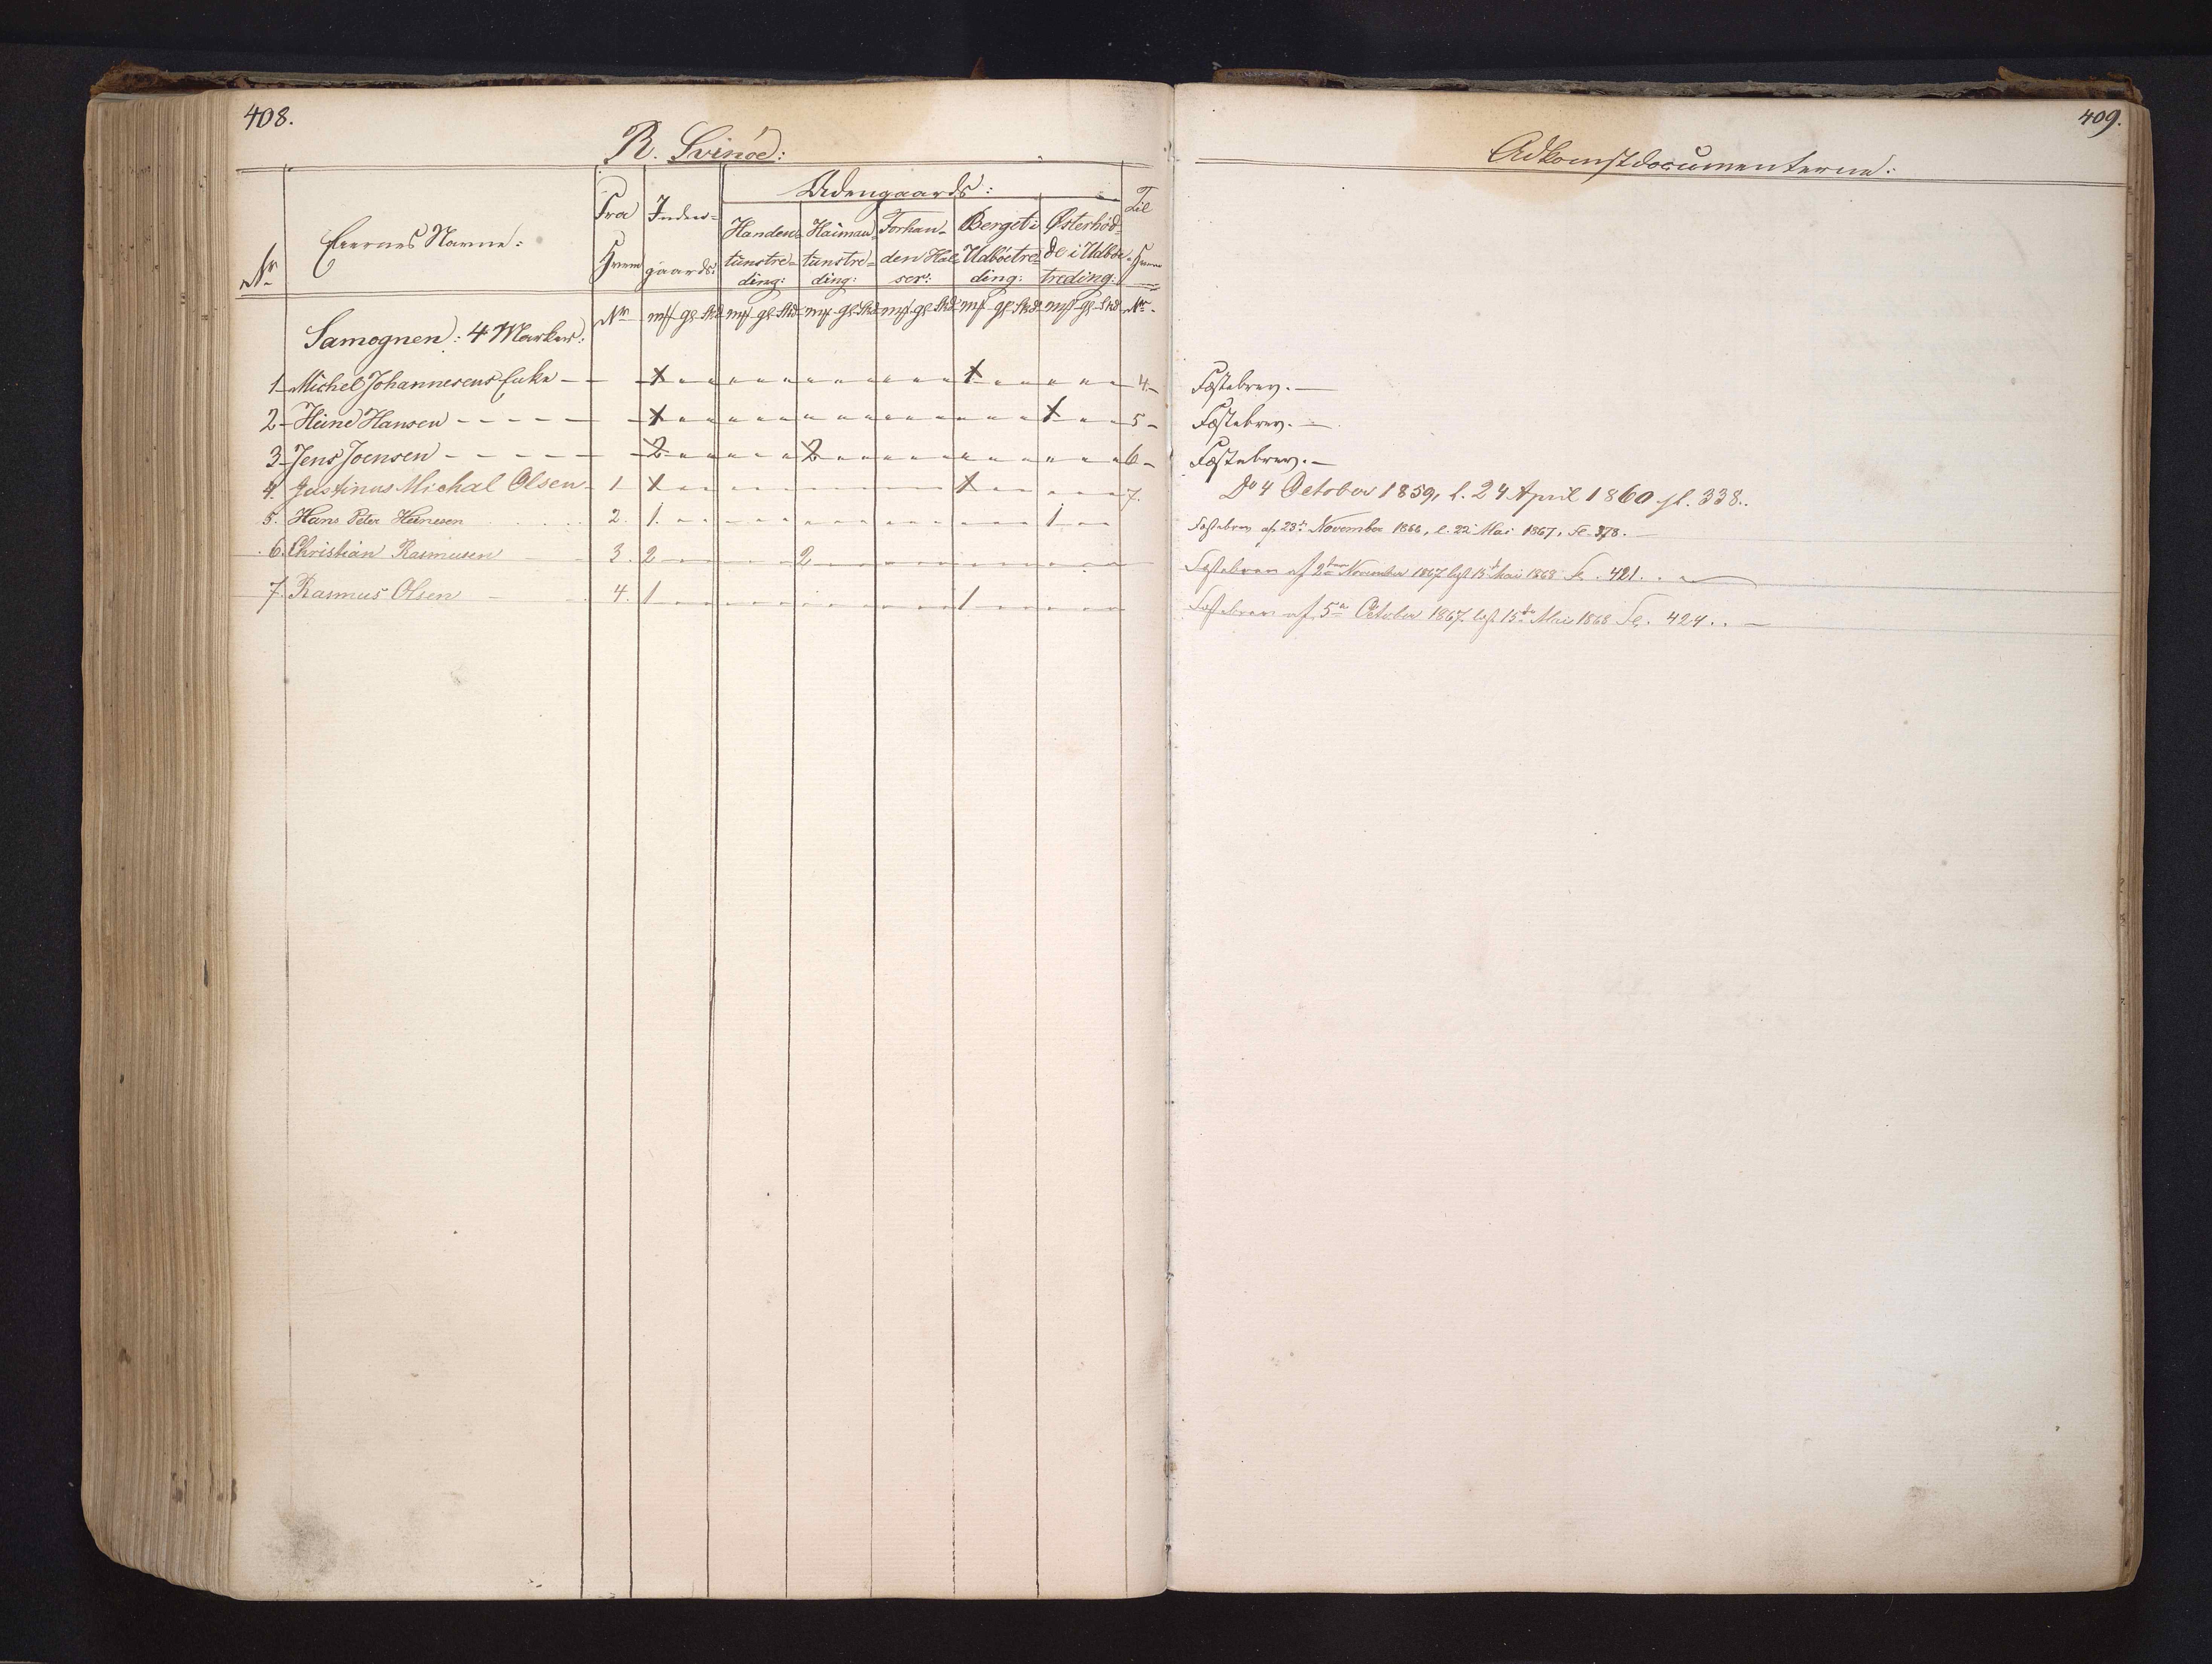 408.
R. Svinöe:
Nr
Eiernes Navne:
Fra Hvem
Inden-gaards:
Udengaards:
Handens-tunstre-ding:
Haiman-tunstre-ding:
Forhan-den Hal-ser:
Berget i Udböetre-ding:
Østerböd-de i Udböe-treding:
Til Hvem
Samognen: 4 Marker:
Nr mk gl Skd mk gl Skd mk gl Skd mk gl Skd mk gl Skd mk gl Skd Nr.
1 Michel Johannesens Enke - 1 1 4 -
2 Heine Hansen - - - - - 1 1 5 -
3 Jens Joensen - - - - - 2 2 6 -
4. Justinus Michal Olsen - 1 1 1 7.
5. Hans Peter Heinesen 2. 1. 1
6. Christian Rasmusen 3. 2 2
7. Rasmus Olsen 4. 1 1
409.
Adkomstdocumenterne:
Fæstebrev. -
Fæstebrev. -
Fæstebrev. -
Do 4 October 1859, l. 24 April 1860 fl. 338..
Fæstebrev af 23de November 1866, l. 22 Mai 1867, Fl. 378. -
Fæstebrev af 2den November 1867 lyst 15de Mai 1868 Fl. 421. . -
Fæstebrev af 5te October 1867. lyst 15de Mai 1868 Fl. 424 . . -